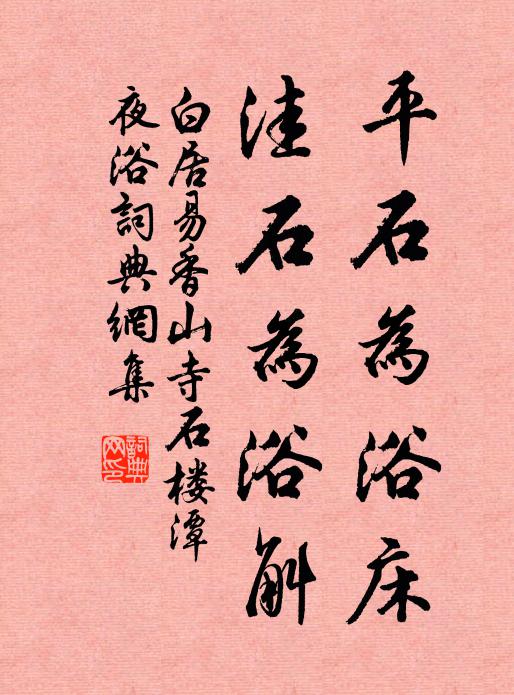 平石為浴床
洼石為浴斛
白居易香山寺石楼潭
夜浴詞典網集
詞典
网印